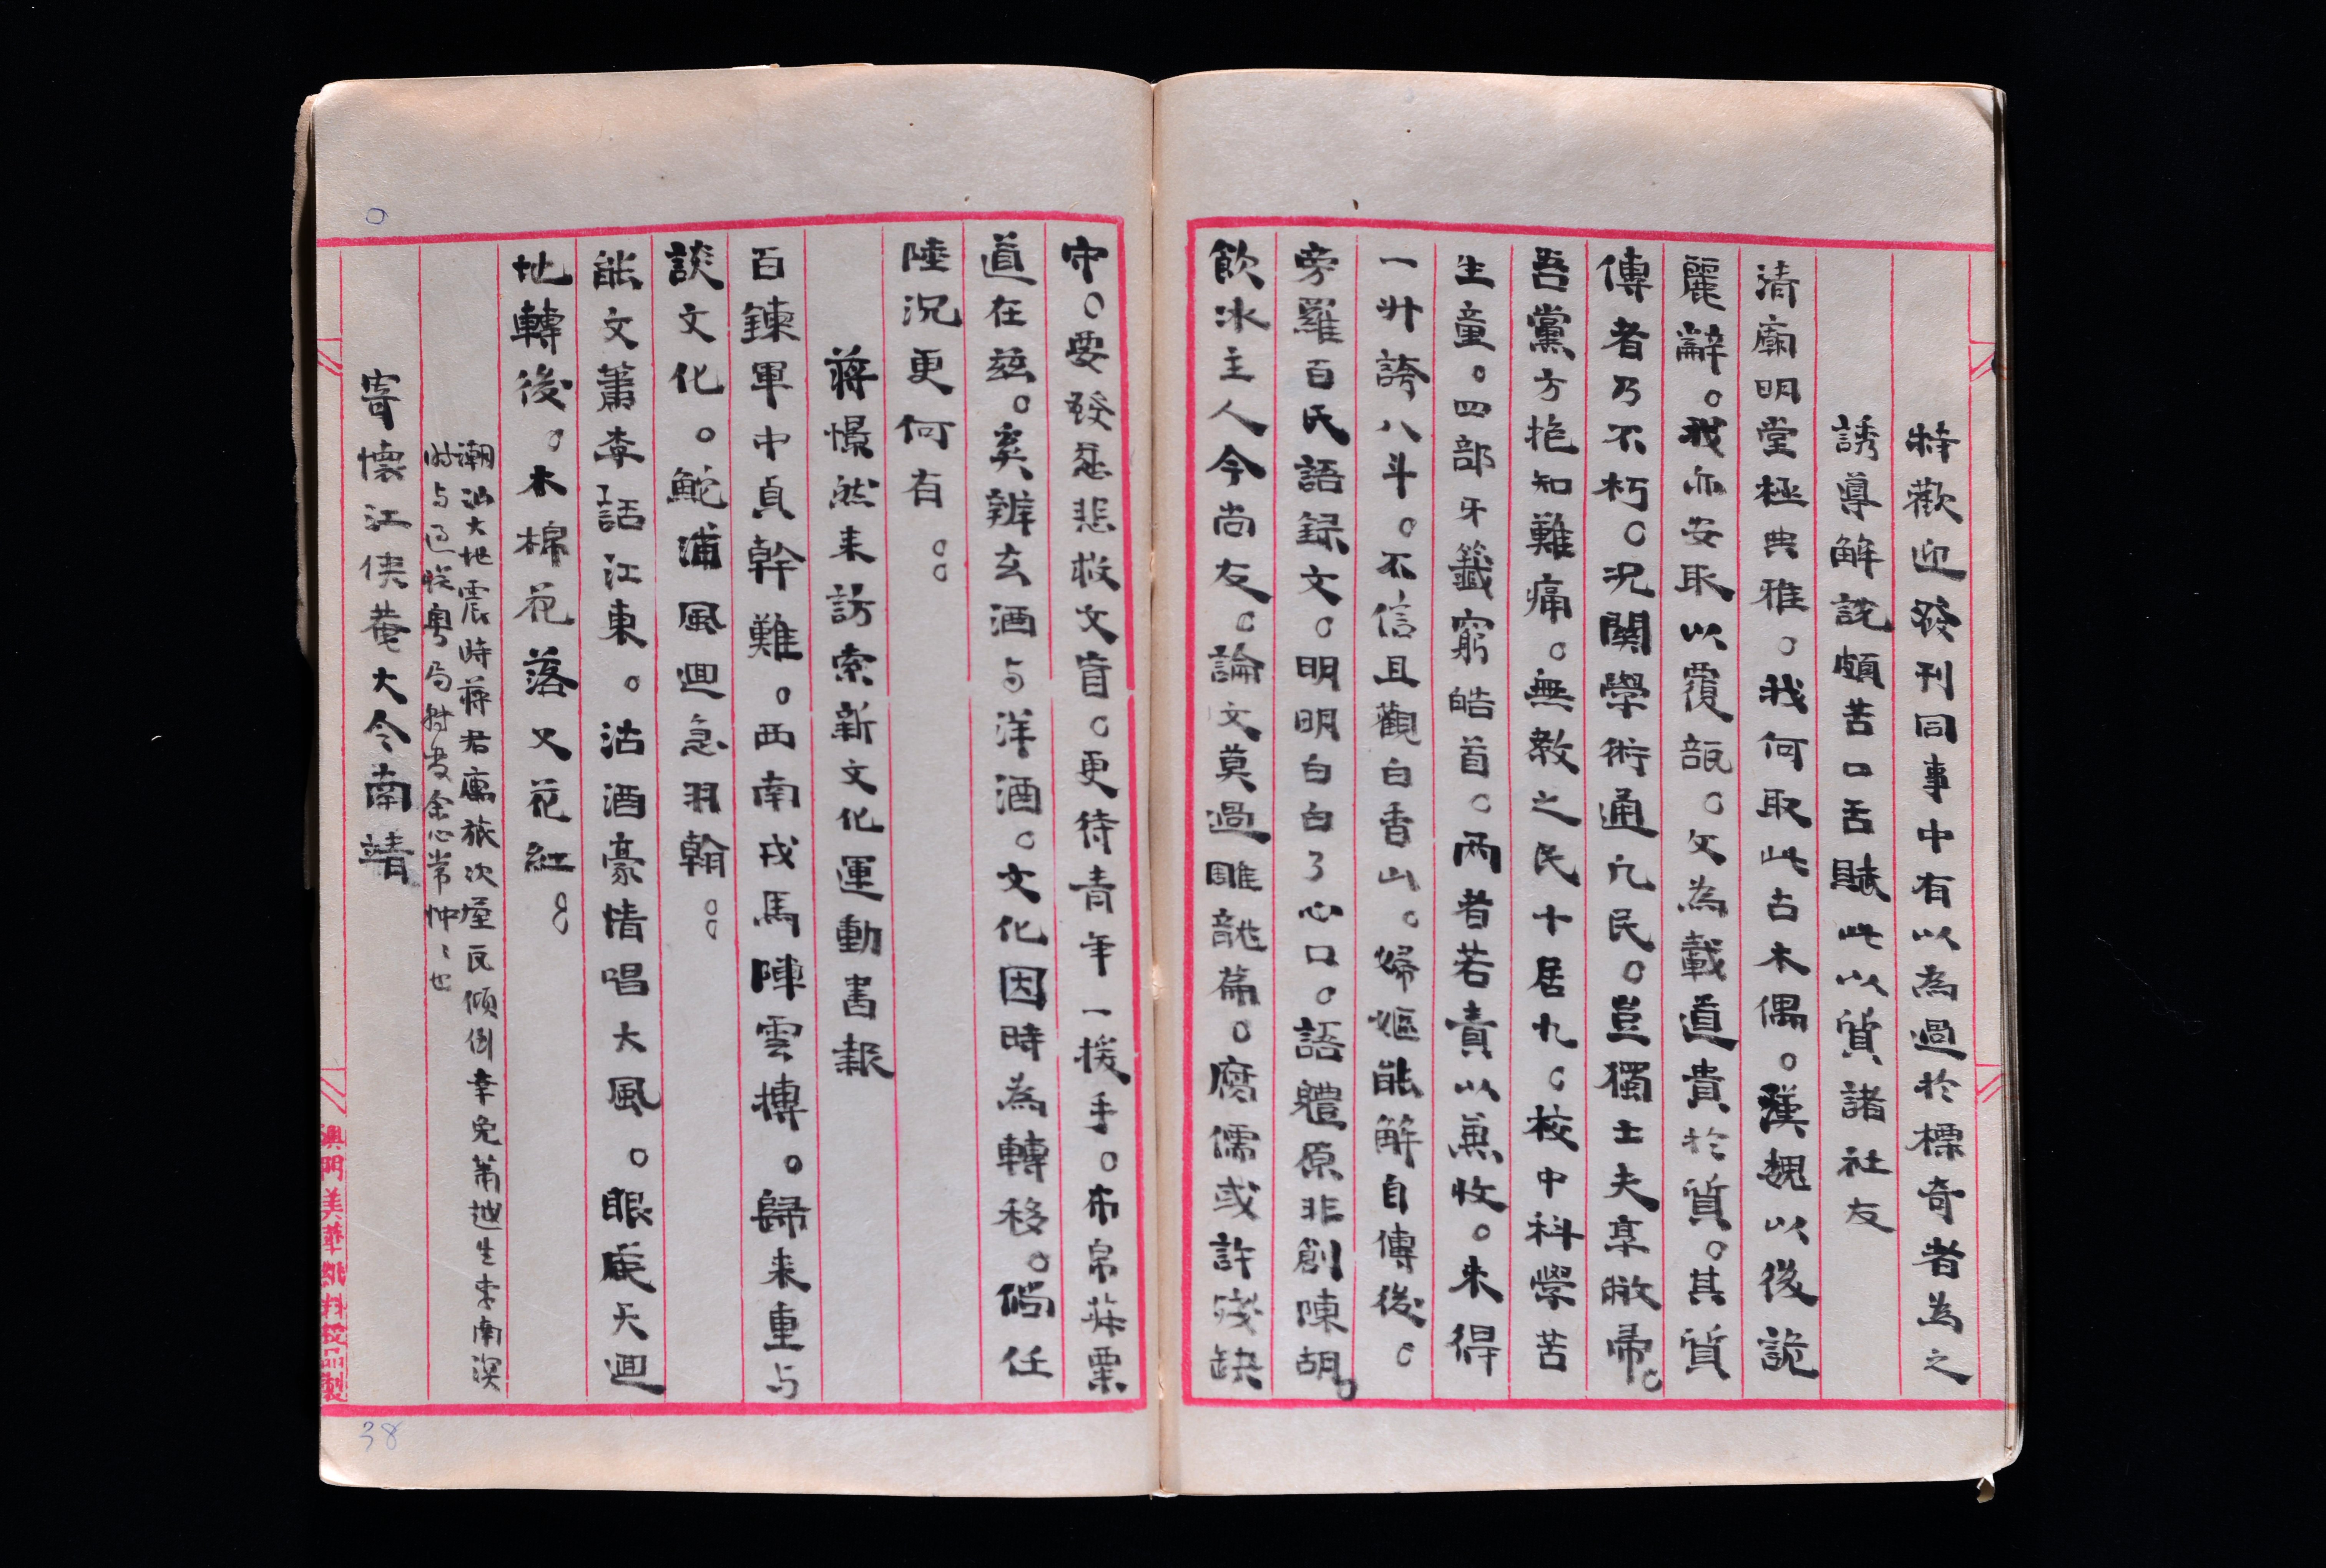 特歡迎發刊同事中有以為過於標奇者為之
誘導解説頗苦口舌賦此以質諸社友
清廟明堂極典雅。我何取此古木偶。漢魏以後詭
麗辭。我亦安取以覆瓿。文為載道貴於質。其質
傳者乃不朽。况關學術通凡民。豈獨士夫享敝帚。
吾黨方抱知難痛。無教之民十居九。校中科學苦
生童。四部牙籤窮皓首。兩者若責以兼收。未得
一升誇八斗。不信且觀白香山。婦嫗能解自傳後。
旁羅百氏語録文。明明白白了心口。語體原非創陳胡。
飲冰主人今尚友。論文莫過雕龍篇。腐儒或許殘缺
守。要發慈悲救文盲。更待青年一援手。布帛菽粟
道在茲。奚辨玄酒与洋酒。文化因時為轉移。倘任
陸况更何有。
蔣憬然来訪索新文化運動書報
百鍊軍中貞幹難。西南戎馬陣雲摶。歸来重与
談文化。鮀浦風迴急羽翰。
能文蕭李話江東。沽酒豪情唱大風。眼底天迴
地轉後。木棉花落又花紅。
潮汕大地震時蔣君寓旅次屋瓦傾倒幸免萧越生李南溟
时与
余心常忡〻也
寄懷江俠菴大令南靖
澳門美華紙料校品製
38